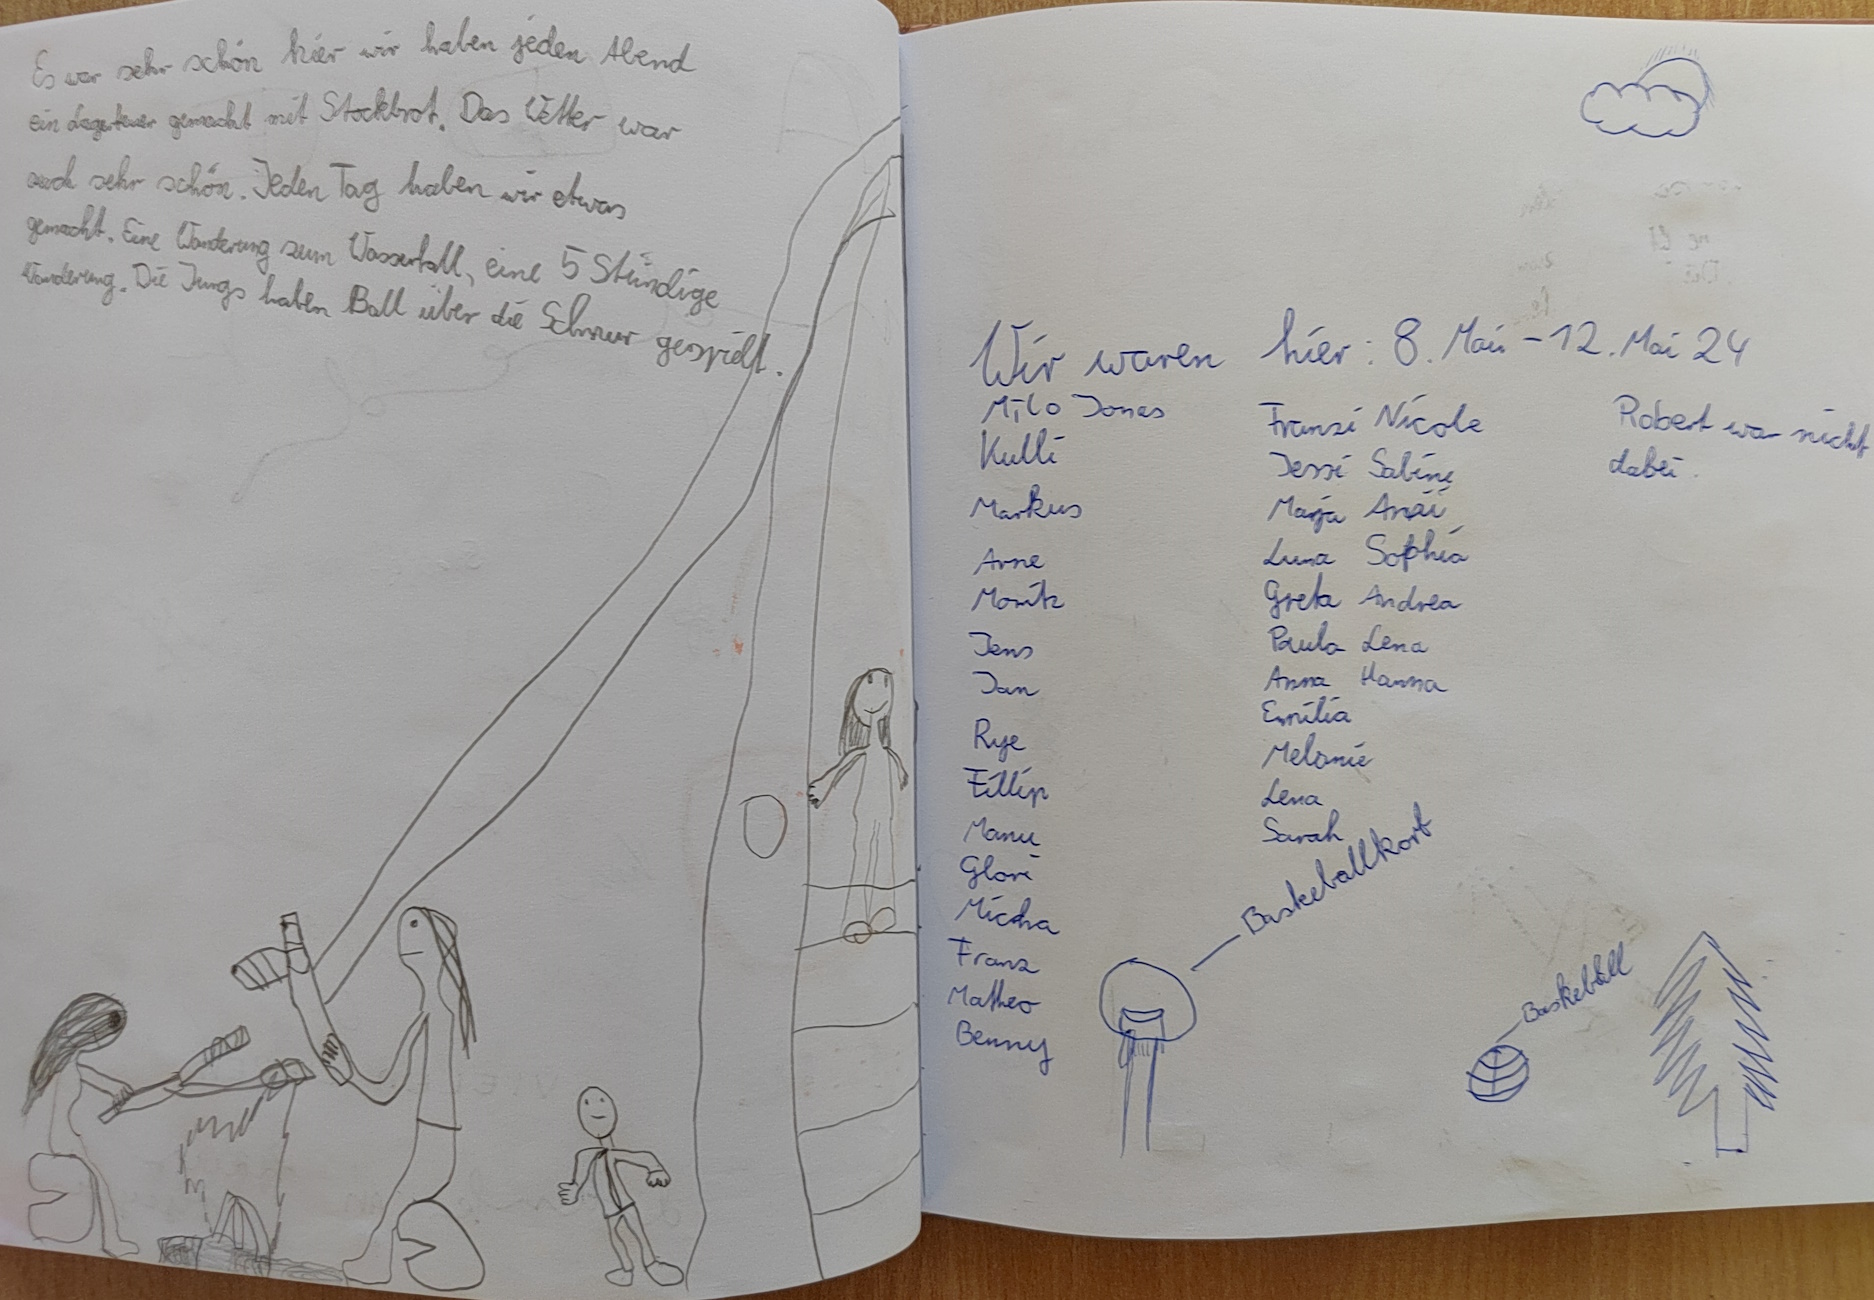 Es war sehr schön hier wir haben jeden Abend
ein Lagerfeuer gemacht mit Stockbrot. Das Wetter war
auch sehr schön. Jeden Tag haben wir etwas
gemacht. Eine Wanderung zum Wasserfall, eine 5 Stündige
Wanderung. Die Jungs haben Ball über die Schnur gespielt.
Wir waren hier: 8. Mai - 12. Mai 24
Milo Jonas
Kulli
Markus
Arne
Moritz
Jens
Jan
Rye
Fillip
Manu
Glori
Micha
Franz
Matheo
Benny
Franzi Nicole
Jessi Sabine
Marja
Luna Sophia
Greta Andrea
Paula Lena
Anna Hanna
Emilia
Melanie
Lena
Sarah
Robert war nicht
dabei.
Baskeballkort
Baskeball